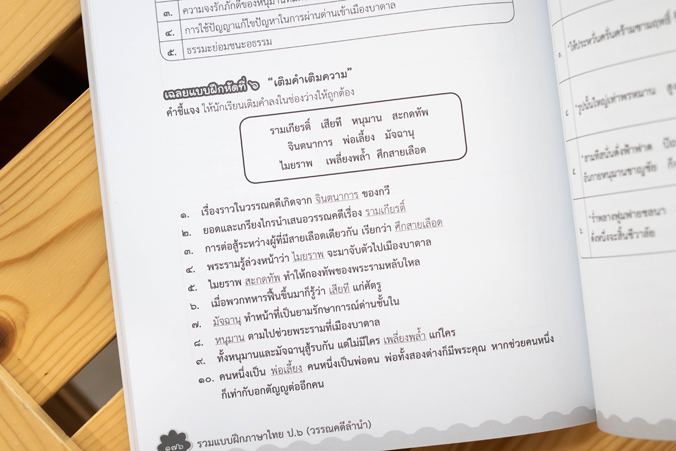 ๓. ความจงรักภักดีของหนุมาน
๔. การใช้ปัญญาแก้ไขปัญหาในการผ่านด่านเข้าเมืองบาดาล
๕. ธรรมะย่อมชนะอธรรม
เฉลยแบบฝึกหัดที่ ๖ "เติมคำเติมความ"
คำชี้แจง ให้นักเรียนเติมคำลงในช่องว่างให้ถูกต้อง
รามเกียรติ์ เสียที หนุมาน สะกดทัพ
จินตนาการ พ่อเลี้ยง มัจฉานุ
ไมยราพ เพลี่ยงพล้ำ ศึกสายเลือด
๑. เรื่องราวในวรรณคดีเกิดจาก จินตนาการ ของกวี
๒. ยอดและเกรียงไกรนำเสนอวรรณคดีเรื่อง รามเกียรติ์
๓. การต่อสู้ระหว่างผู้ที่มีสายเลือดเดียวกัน เรียกว่า ศึกสายเลือด
๔. พระรามรู้ล่วงหน้าว่า ไมยราพ จะมาจับตัวไปเมืองบาดาล
๕. ไมยราพ สะกดทัพ ทำให้กองทัพของพระรามหลับใหล
๖. เมื่อพวกทหารฟื้นขึ้นมาก็รู้ว่า เสียที แก่ศัตรู
๗. มัจฉานุ ทำหน้าที่เป็นยามรักษาการณ์ด่านชั้นใน
๘. หนุมาน ตามไปช่วยพระรามที่เมืองบาดาล
๙. ทั้งหนุมานและมัจฉานุสู้รบกัน แต่ไม่มีใคร เพลี่ยงพล้ำ แก่ใคร
๑๐. คนหนึ่งเป็น พ่อเลี้ยง คนหนึ่งเป็นพ่อตน พ่อทั้งสองต่างก็มีพระคุณ หากช่วยคนหนึ่ง
ก็เท่ากับอกตัญญูต่ออีกคน
๑๗๖ รวมแบบฝึกภาษาไทย ป.๖ (วรรณคดีลำนำ)